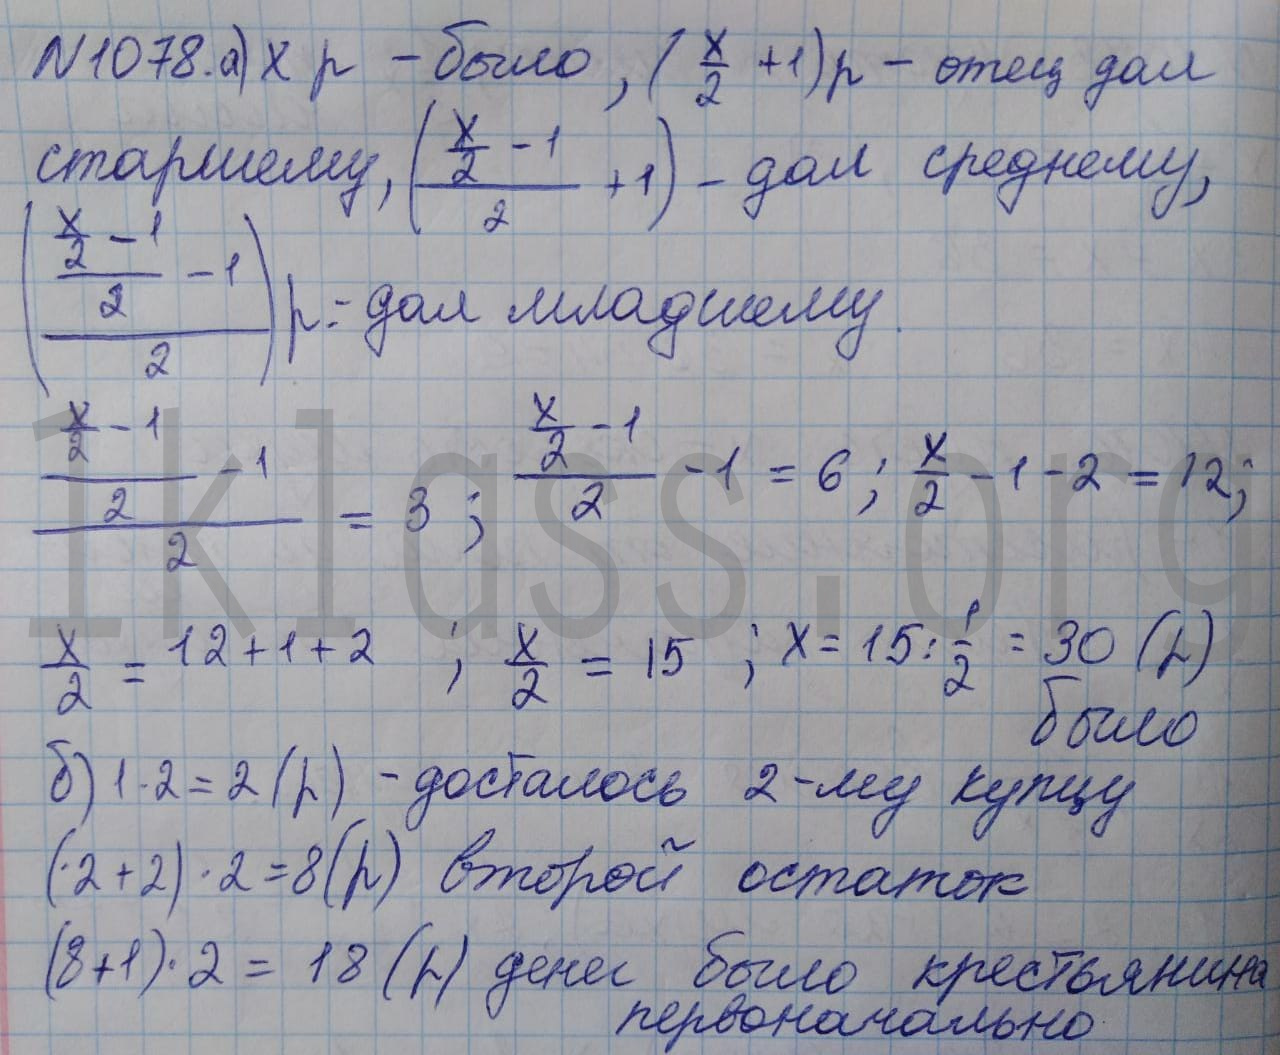 N1078.а) x р - было, (x/2 + 1) р - отец дал
старшему, ((x/2 - 1)/2 + 1) - дал среднему,
(((x/2 - 1)/2 - 1)/2) р - дал младшему.
((x/2 - 1)/2 - 1)/2 = 3; (x/2 - 1)/2 - 1 = 6; x/2 - 1 - 2 = 12;
x/2 = 12 + 1 + 2; x/2 = 15; x = 15 : 1/2 = 30 (р)
было
б) 1 · 2 = 2 (р) - досталось 2-му купцу
(·2 + 2) · 2 = 8 (р) второй остаток
(8 + 1) · 2 = 18 (р) денег было крестьянина
первоначально
1klass.org